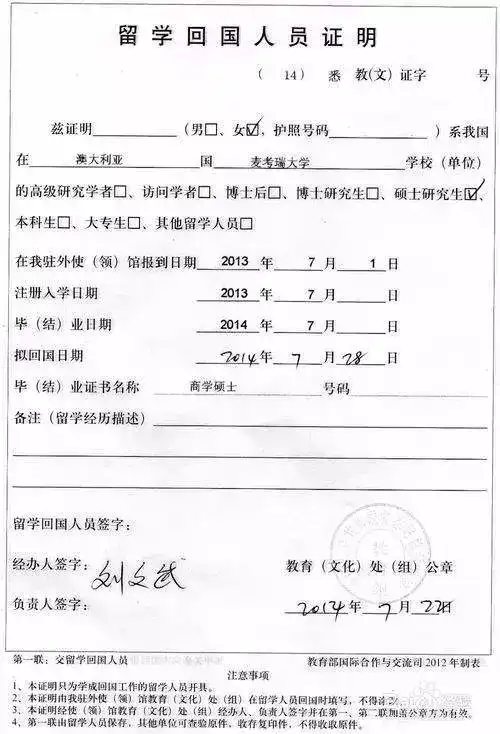 留学回国人员证明
( 14) 悉 教(文)证字 号
兹证明 (男□、女☑, 护照号码 )系我国
在 澳大利亚 国 麦考瑞大学 学校(单位)
的高级研究学者□、访问学者□、博士后□、博士研究生□、硕士研究生☑、
本科生□、大专生□、其他留学人员□
在我驻外使(领)馆报到日期 2013 年 7 月 1 日
注册入学日期 2013 年 7 月 日
毕(结)业日期 2014 年 7 月 日
拟回国日期 2014 年 7 月 28 日
毕(结)业证书名称 商学硕士 号码
备注(留学经历描述)
留学回国人员签字:
经办人签字: 刘文武
教育(文化)处(组)公章
负责人签字:
2014 年 7 月 22日
第一联:交留学回国人员 教育部国际合作与交流司2012年制表
注意事项
1、本证明只为学成回国工作的留学人员开具。
2、本证明由我驻外使(领)馆教育(文化)处(组)在留学人员回国时填写,不得涂改。
3、本证明经使(领)馆教育(文化)处(组)经办人、负责人签字并在第一、第二联加盖公章方为有效。
4、第一联由留学人员保存,其他单位可查验原件、收存复印件,不得收取原件。